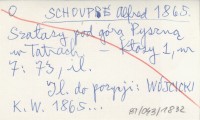 O SCHOUPPÉ Alfred 1865.
Szałasy pod górą Pyszną
w Tatrach. – Kłosy 1, nr
7: 73, il.
Il. do pozycji: WÓJCICKI
K. W. 1865...